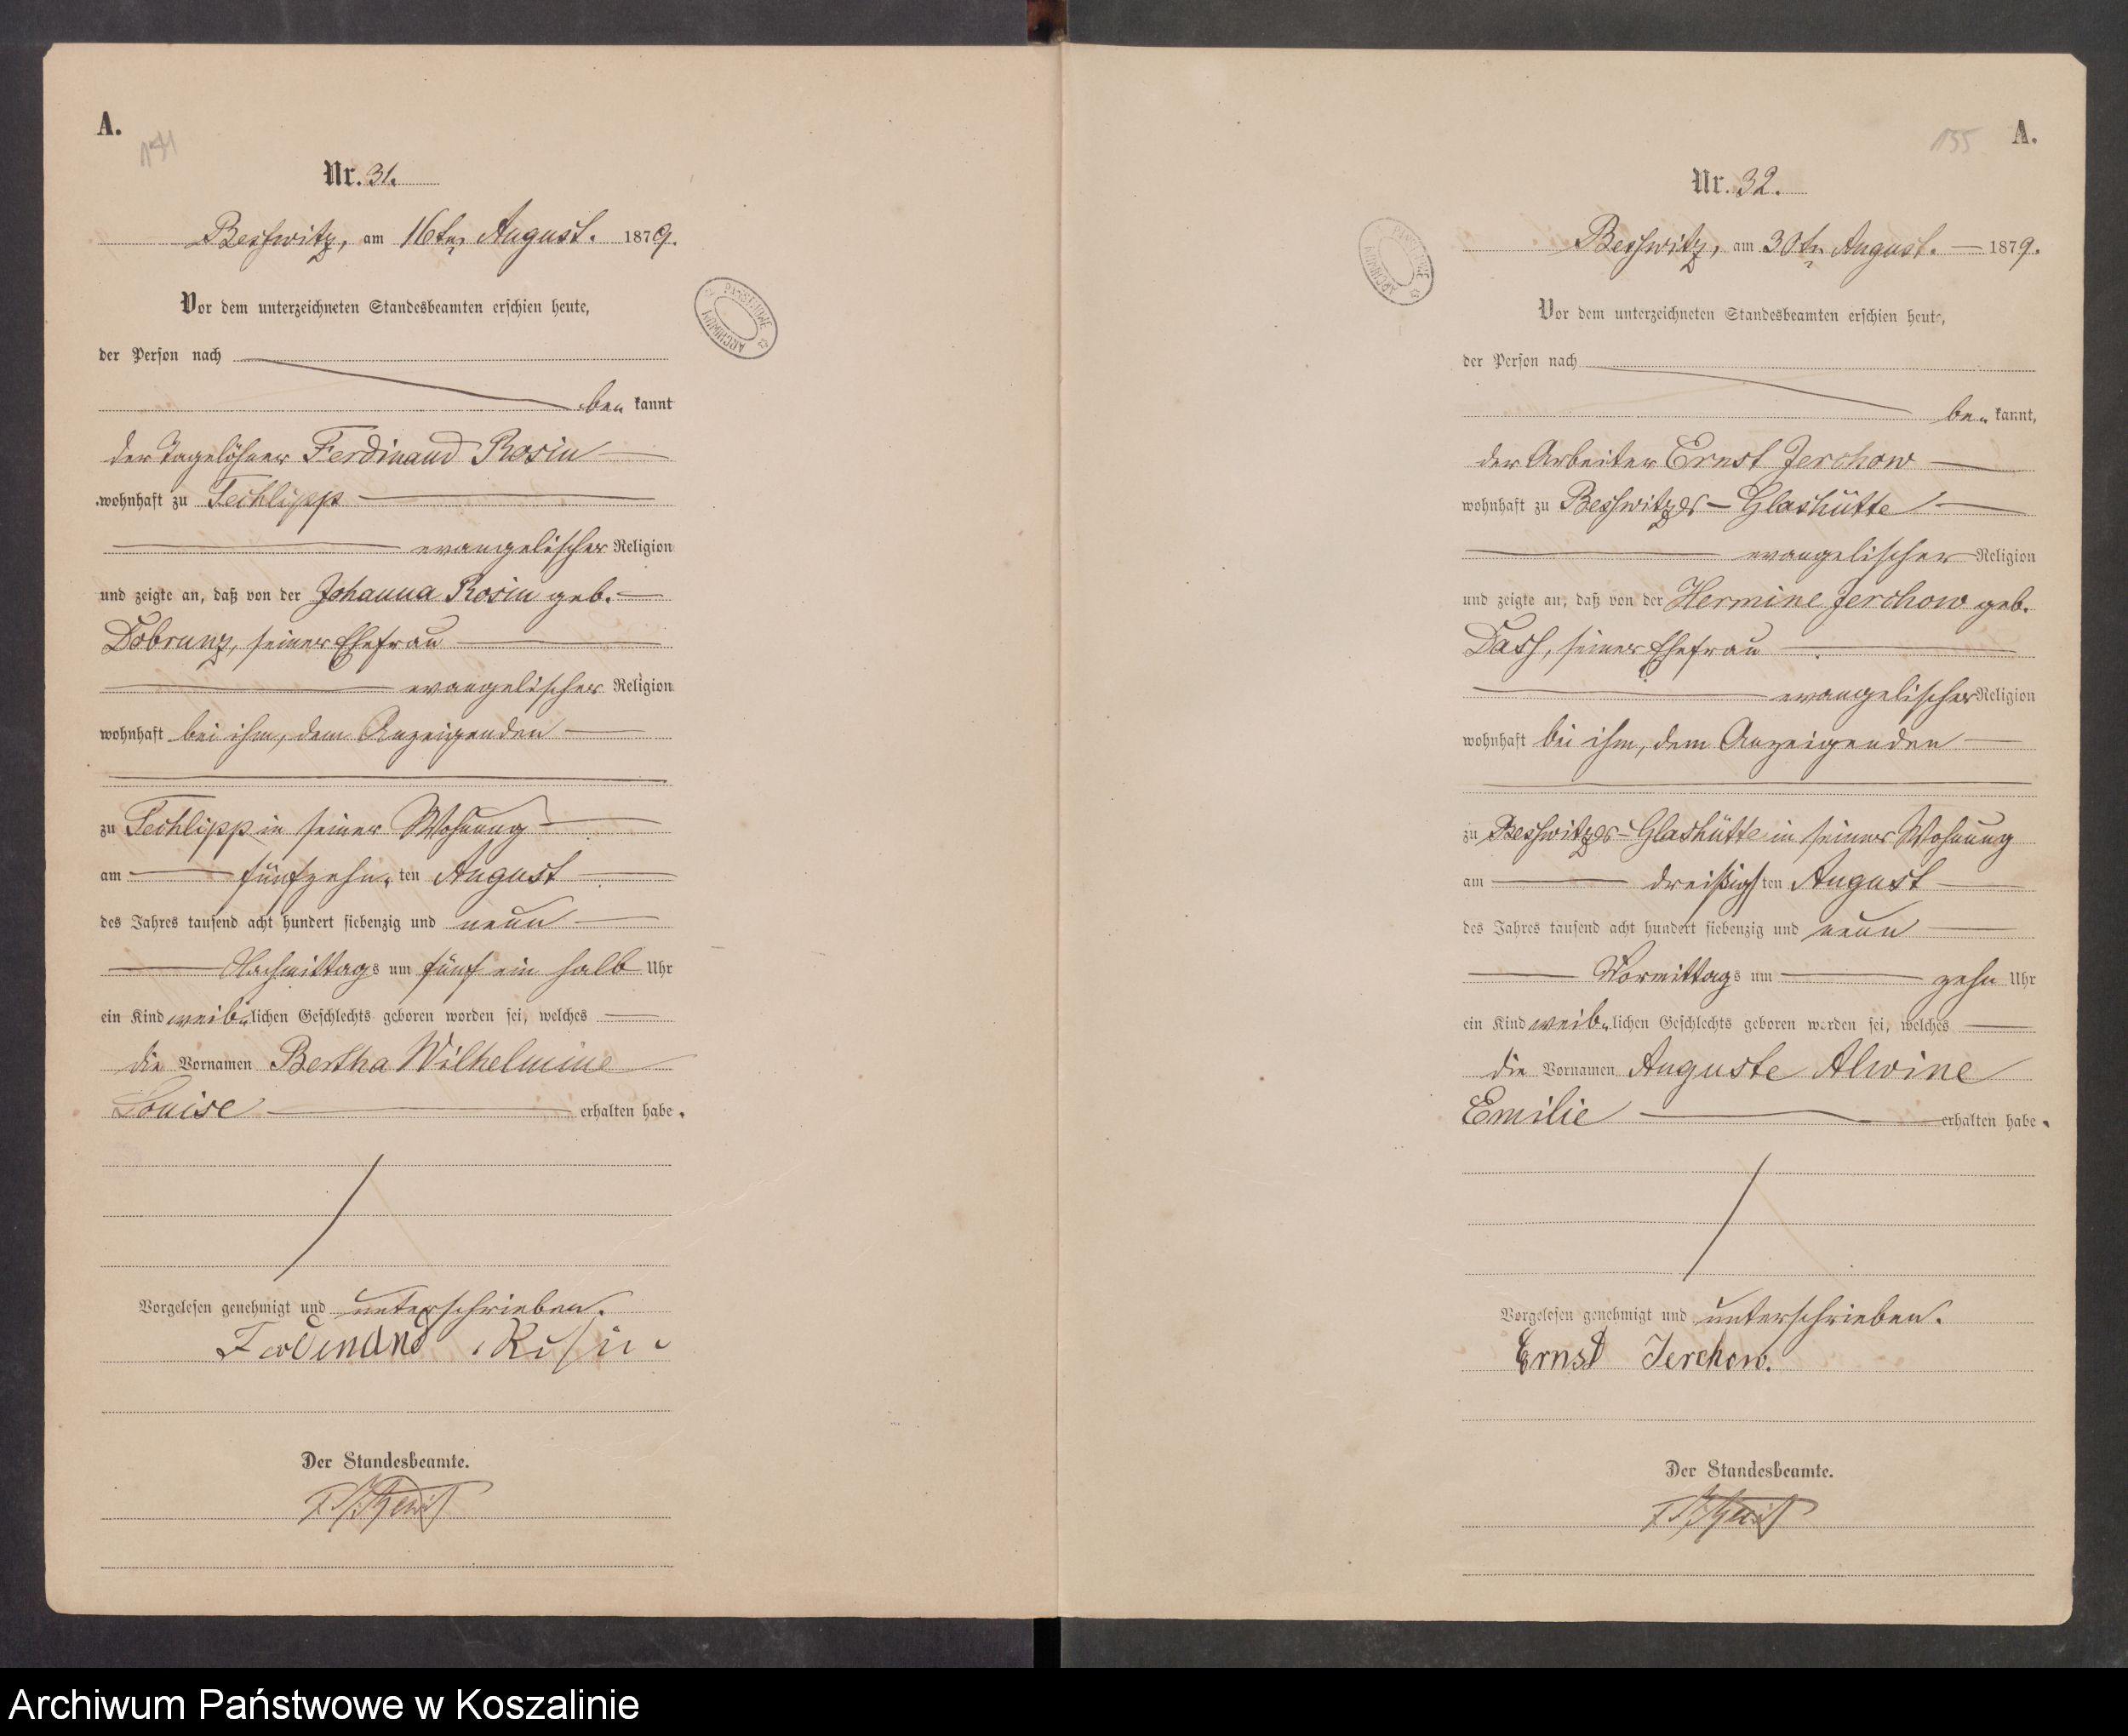 A.
Nr. 31.
Besswitz, am 16ten August. 1879.
Vor dem unterzeichneten Standesbeamten erschien heute,
der Person nach
be„ kannt
der Tagelöhner Ferdinand Rosin
wohnhaft zu Techlipp
evangelischer Religion
und zeigte an, daß von der Johanna Rosin geb.
Dobrunz, seiner Ehefrau
evangelischer Religion
wohnhaft bei ihm, dem Anzeigenden
zu Techlipp in seiner Wohnung
am fünfzehn„ ten August
des Jahres tausend acht hundert siebenzig und neun
Nachmittags um fünf ein halb Uhr
ein Kind weib„lichen Geschlechts geboren worden sei, welches
die Vornamen Bertha Wilhelmine
Louise erhalten habe.
Vorgelesen genehmigt und unterschrieben.
Ferdinand Rosin
Der Standesbeamte.
ARCHIWUM PAŃSTWOWE
155 A.
Nr. 32.
Besswitz, am 30ten August. 1879.
Vor dem unterzeichneten Standesbeamten erschien heute,
der Person nach
be„ kannt,
der Arbeiter Ernst Jerchow
wohnhaft zu Besswitzer-Glashütte
evangelischer Religion
und zeigte an, daß von der Hermine Jerchow geb.
Dash, seiner Ehefrau
evangelischer Religion
wohnhaft bei ihm, dem Anzeigenden
zu Besswitzer-Glashütte in seiner Wohnung
am dreißigsten August
des Jahres tausend acht hundert siebenzig und neun
Vormittags um zehn Uhr
ein Kind weib„lichen Geschlechts geboren worden sei, welches
die Vornamen Auguste Alwine
Emilie erhalten habe.
Vorgelesen genehmigt und unterschrieben.
Ernst Jerchow.
Der Standesbeamte.
ARCHIWUM PAŃSTWOWE
Archiwum Państwowe w Koszalinie